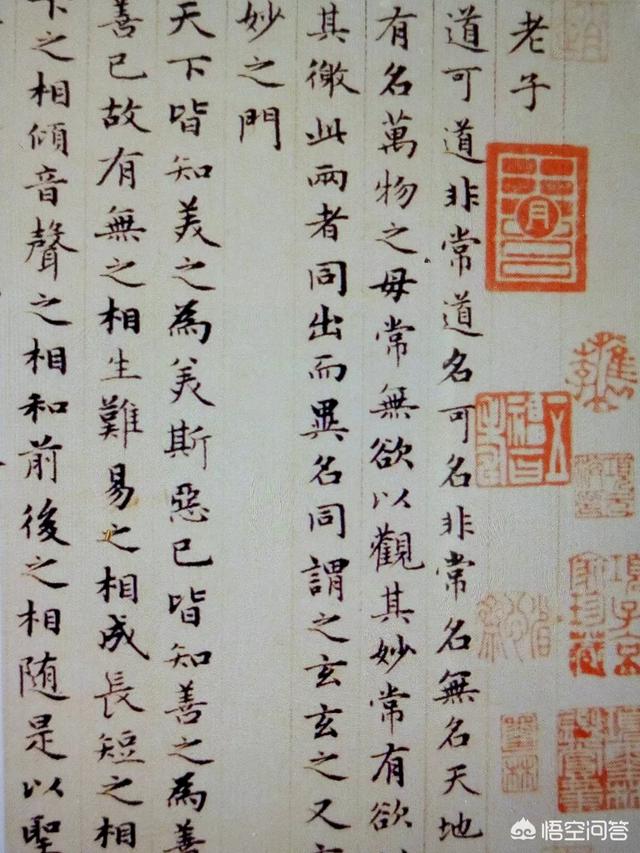 老子
道可道非常道名可名非常名無名天地
有名萬物之母常無欲以觀其妙常有欲
其徼此兩者同出而異名同謂之玄玄之又
妙之門
天下皆知美之為美斯惡已皆知善之為善
善已故有無之相生難易之相成長短之相
下之相傾音聲之相和前後之相随是以聖
項子京
家珍藏
悟空问答